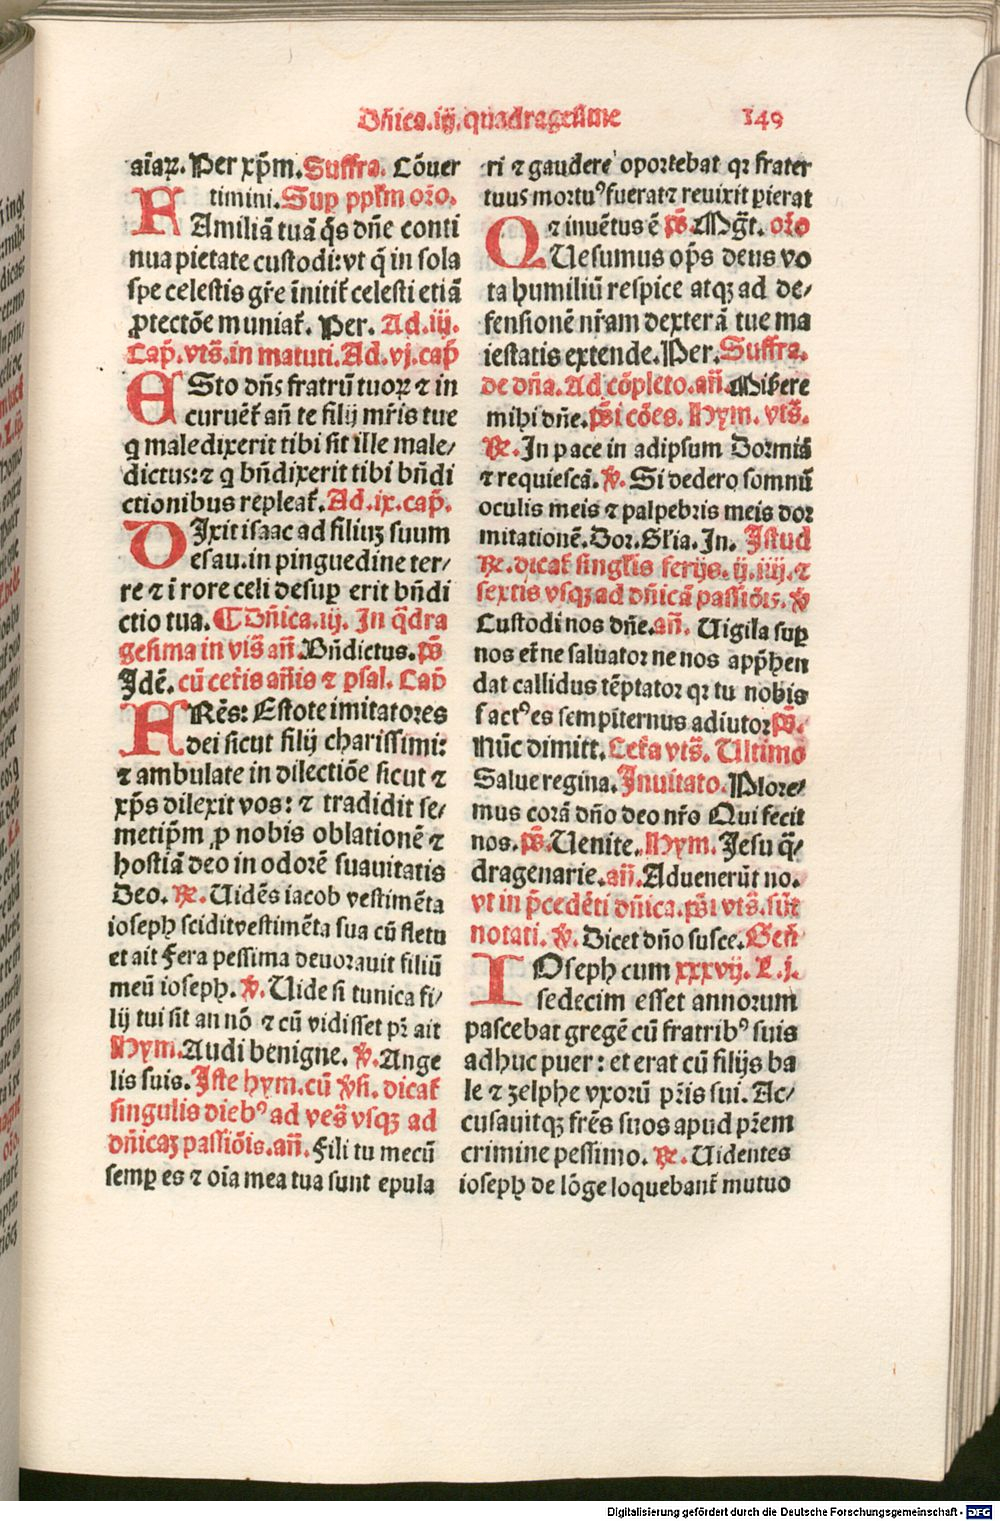 Dñica.iij.quadragesime 149
aĩaꝝ. Per xp̃m. Suffra. Cõuer
timini. Sup ppl̃m or̃o.
FAmiliã tuã q̃s dñe conti
nua pietate custodi: vt q̃ in sola
spe celestis gr̃e ĩnitit̃ celesti etiã
ꝓtectõe muniat̃. Per. Ad.iij.
Cap̃. vts̃. in matuti. Ad.vj.cap̃
ESto dñs fratrũ tuoꝝ ⁊ in
curuẽt̃ añ te filij mr̃is tue
q maledixerit tibi sit ille male/
dictus: ⁊ q bñdixerit tibi bñdi
ctionibus repleat̃. Ad.ix.cap̃.
DIxit isaac ad filiuʒ suum
esau. in pinguedine ter/
re ⁊ ĩ rore celi desuꝑ erit bñdi
ctio tua. ¶ Dñica.iij. In q̃dra
gesima in vis̃ añ. Bñdictus. ps̃
Idẽ. cũ cet̃is añis ⁊ psal. Cap̃
FRẽs: Estote imitatores
dei sicut filij charissimi:
⁊ ambulate in dilectiõe sicut ⁊
xp̃s dilexit vos: ⁊ tradidit se/
metip̃m ꝓ nobis oblationẽ ⁊
hostiã deo in odorẽ suauitatis
Deo. ℞. Uidẽs iacob vestimẽta
ioseph sciditvestimẽta sua cũ fletu
et ait Fera pessima deuorauit filiũ
meũ ioseph. ℣. Uide si tunica fi/
lij tui sit an nõ ⁊ cũ vidisset pr̃ ait
Hym. Audi benigne. ℣. Ange
lis suis. Iste hym. cũ ℣si. dicat̃
singulis diebꝰ ad ves̃ vsqʒ ad
dñicaʒ passiõis. añ. Fili tu mecũ
semꝑ es ⁊ oĩa mea tua sunt epula
ri ⁊ gaudere oportebat qr frater
tuus mortuꝰ fuerat⁊ reuixit ꝑierat
⁊ inuẽtus ẽ ps̃. Mgt̃. or̃o
QUesumus op̃s deus vo
ta humiliũ respice atqʒ ad de/
fensionẽ nr̃am dexterã tue ma
iestatis extende. Per. Suffra.
de dña. Ad cõpleto. añ. Miẜere
mihi dñe. ps̃i cões. Hym. vts̃.
℞. In pace in adipsum Dormiã
⁊ requiescã. ℣. Si dedero somnũ
oculis meis ⁊ palpebris meis dor
mitationẽ. Dor. Gl̃ia. In. Istud
℞. dicat̃ singl̃is ferijs. ij. iiij. ⁊
sextis vsqʒ ad dñicã passiõis. ℣
Custodi nos dñe. añ. Uigila suꝑ
nos et̃ne saluator ne nos app̃hen
dat callidus tẽptator qr tu nobis
factꝰ es sempiternus adiutor ps̃.
Nũc dimitt. Cet̃a vts̃. Ultimo
Salue regina. Inuitato. Plore/
mus corã dño deo nr̃o Qui fecit
nos. ps̃. Uenite. Hym. Iesu q̃/
dragenarie. añ. Aduenerũt no.
vt in p̃cedẽti dñica. ps̃i vts̃. sũt
notati. ℣. Dicet dño susce. Geñ
IOseph cum xxxvij. L. j.
sedecim esset annorum
pascebat gregẽ cũ fratribꝰ suis
adhuc puer: et erat cũ filijs ba
le ⁊ zelphe vxorũ pr̃is sui. Ac/
cusauitqʒ fr̃es suos apud pr̃em
crimine pessimo. ℞. Uidentes
ioseph de lõge loquebant̃ mutuo
Digitalisierung gefördert durch die Deutsche Forschungsgemeinschaft - DFG